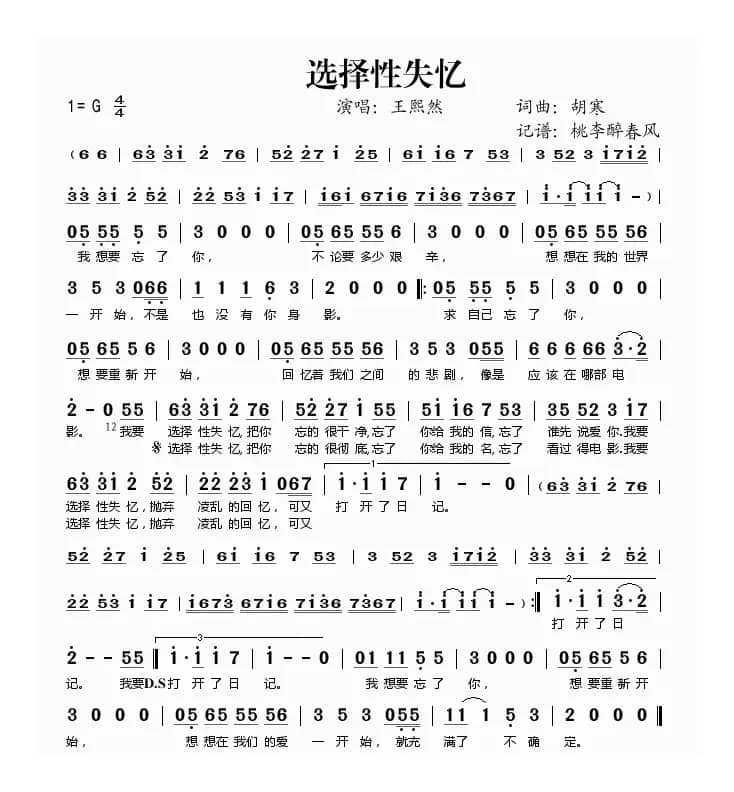 选择性失忆
1= G 4/4 演唱：王熙然 词曲：胡寒
记谱：桃李醉春风
( 6 6 | 63 31 2 76 | 52 27 1 25 | 61 16 7 53 | 3 52 3 1712 |
33 31 2 52 | 22 53 1 17 | 161 6716 7136 7367 | 1·1 11 1 - ) |
05 55 5 5 | 3 0 0 0 | 05 65 55 5 | 3 0 0 0 | 05 65 55 56 |
我想要忘了 你， 不论要多少艰 辛， 想想在我的世界
3 5 3 066 | 1 1 1 6 3 | 2 0 0 0 |: 05 55 5 5 | 3 0 0 0 |
一开始，不是 也没有你身 影。 求自己忘了 你，
05 65 5 6 | 3 0 0 0 | 05 65 55 56 | 3 5 3 055 | 6 6 66 3·2 |
想要重新开 始， 回忆着我们之间 的悲剧，像是 应该在哪部电
2 - 0 55 | 63 31 2 76 | 52 27 1 55 | 51 16 7 53 | 35 52 3 17 |
影。 12 我要 选择性失忆，把你 忘的很干净，忘了 你给我的信，忘了 谁先说爱你.我要
𝄋 选择性失忆，把你 忘的很彻底，忘了 你给我的名，忘了 看过得电影.我要
63 31 2 52 | 22 23 1 067 | 1 1·1 1 7 | 1 - - 0 | (63 31 2 76 |
选择性失忆，抛弃 凌乱的回忆，可又 打开了日 记。
选择性失忆，抛弃 凌乱的回忆，可又
52 27 1 25 | 61 16 7 53 | 3 52 3 1712 | 33 31 2 52 |
22 53 1 17 | 1673 6716 7136 7367 | 1·1 11 1 - ) :| 2 1·1 1 3·2 |
打开了日
2 - - 55 | 3 1·1 1 7 | 1 - - 0 | 01 11 5 5 | 3 0 0 0 | 05 65 5 6 |
记。 我要D.S打开了日 记。 我想要忘了 你， 想要重新开
3 0 0 0 | 05 65 55 56 | 3 5 3 055 | 11 1 5 3 | 2 0 0 0 ‖
始， 想想在我们的爱 一开始，就充 满了 不确 定。